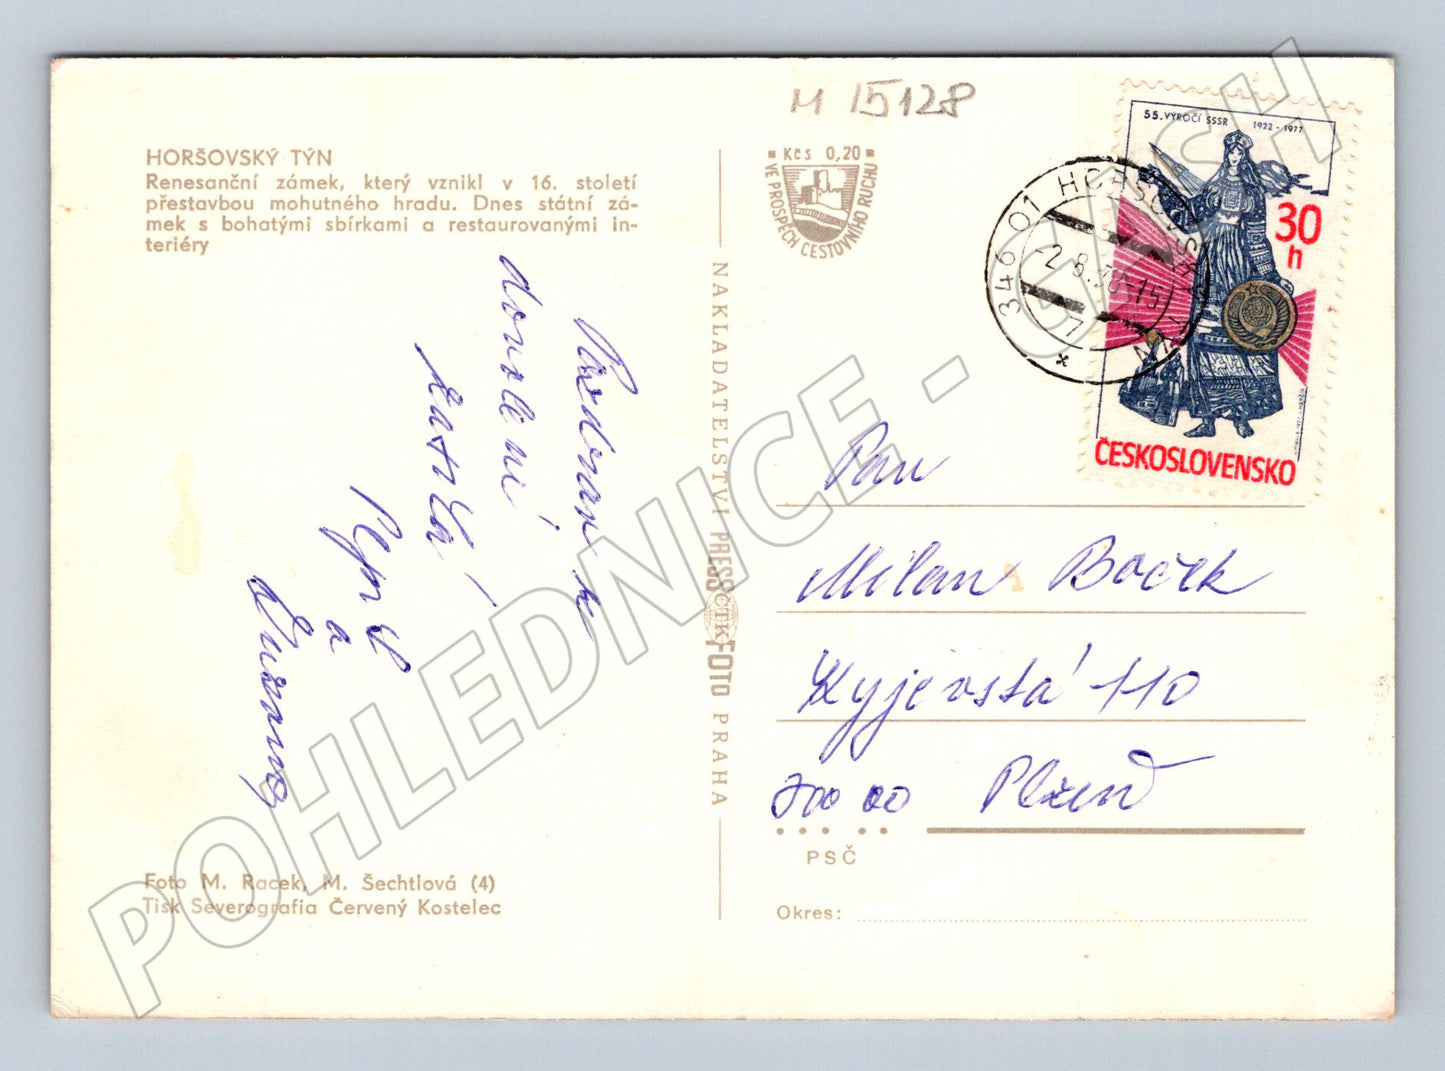 M 15128
HORŠOVSKÝ TÝN
Renesanční zámek, který vznikl v 16. století
přestavbou mohutného hradu. Dnes státní zá-
mek s bohatými sbírkami a restaurovanými in-
teriéry
Pozdrav z
dovolené
a
Foto M. Racek, M. Šechtlová (4)
Tisk Severografia Červený Kostelec
NAKLADATELSTVÍ PRESSFOTO PRAHA
ČTK
Kčs 0,20
VE PROSPĚCH CESTOVNÍHO RUCHU
55. VÝROČÍ SSSR 1922 - 1977
30
h
ČESKOSLOVENSKO
346 01 HORŠOVSKÝ TÝN
-2.8.78-15
Pan
Milan Boček
Kyjevská 110
300 00 Plzeň
PSČ
Okres:
POHLEDNICE - CASH